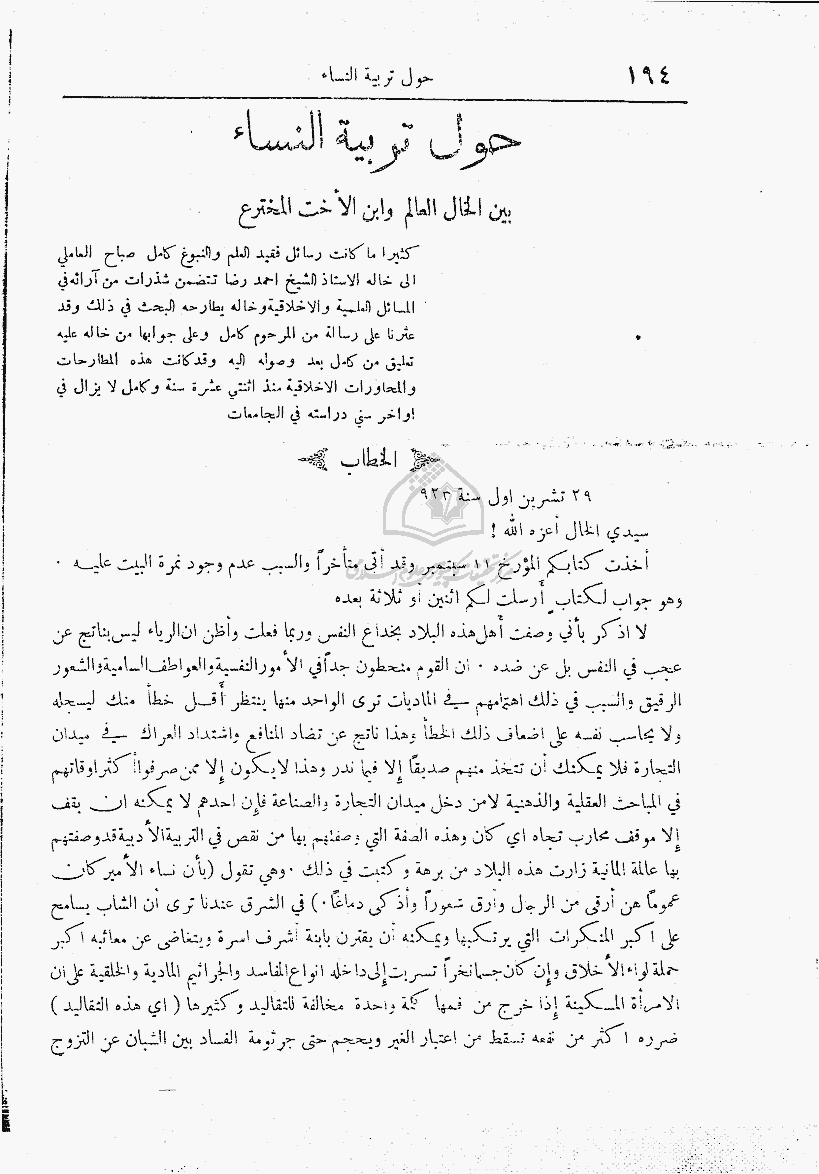 ١٩٤ حول تربية النساء
حول تربية النساء
بين الخال العالم وابن الأخت المخترع
كثيرا ما كانت رسائل فقيد العلم والنبوغ كامل صباح العاملي
الى خاله الاستاذ الشيخ احمد رضا تتضمن شذرات من آرائه في
المسائل العلمية والاخلاقية وخاله يطارحه البحث في ذلك وقد
عثرنا على رسالة من المرحوم كامل وعلى جوابها من خاله عليه
تعليق من كامل بعد وصوله اليه وقد كانت هذه المطارحات
والمحاورات الاخلاقية منذ اثنتي عشرة سنة وكامل لا يزال في
اواخر سني دراسته في الجامعات
الخطاب
٢٩ تشرين اول سنة ٩٢٣
سيدي الخال أعزه الله !
أخذت كتابكم المؤرخ ١١ سبتمبر وقد أتى متأخراً والسبب عدم وجود نمرة البيت عليه ٠
وهو جواب لكتاب أرسلت لكم اثنين أو ثلاثة بعده
لا اذكر بأني وصفت أهل هذه البلاد بخداع النفس وربما فعلت وأظن ان الرياء ليس بناتج عن
عجب في النفس بل عن ضده ٠ ان القوم منحطون جداً في الأمور النفسية والعواطف السامية والشعور
الرقيق والسبب في ذلك اهتمامهم في الماديات ترى الواحد منها ينتظر أقل خطأ منك ليسجله
ولا يحاسب نفسه على اضعاف ذلك الخطأ وهذا ناتج عن تضاد المنافع واشتداد العراك في ميدان
التجارة فلا يمكنك أن تتخذ منهم صديقاً إلا فيما ندر وهذا لا يكون إلا ممن صرفوا أكثر اوقاتهم
في المباحث العقلية والذهنية لا من دخل ميدان التجارة والصناعة فإن احدهم لا يمكنه ان يقف
إلا موقف محارب تجاه اي كان وهذه الصفة التي وصفتهم بها من نقص في التربية الأدبية قد وصفتهم
بها عالمة المانية زارت هذه البلاد من برهة وكتبت في ذلك ٠ وهي تقول (بأن نساء الأميركان
عموماً هن أرقى من الرجال وأرق شعوراً وأذكى دماغاً ٠) في الشرق عندنا ترى أن الشاب يسامح
على اكبر المنكرات التي يرتكبها ويمكنه أن يقترن بابنة أشرف اسرة ويتغاضى عن معائبه اكبر
حملة لواء الأخلاق وإن كان جسما نخراً تسربت إلى داخله انواع المفاسد والجرائم المادية والخلقية على ان
الامرأة المسكينة إذا خرج من فمها كلمة واحدة مخالفة للتقاليد وكثيرها ( اي هذه التقاليد )
ضرره اكثر من نفعه تسقط من اعتبار الغير ويحجم حتى جرثومة الفساد بين الشبان عن التزوج